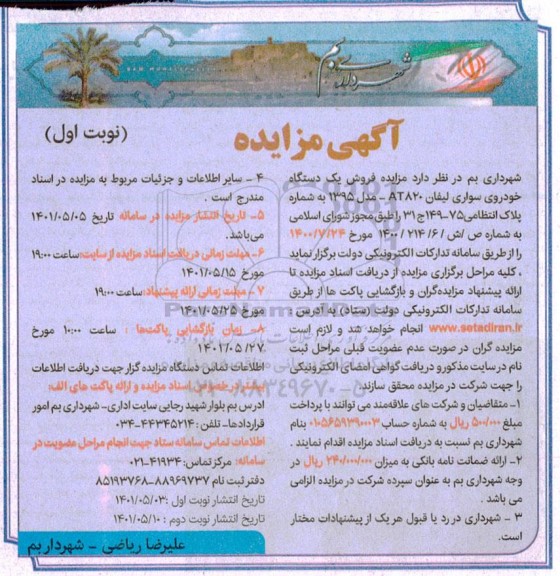 شهرداری بم
آگهی مزایده
(نوبت اول)
شهرداری بم در نظر دارد مزایده فروش یک دستگاه
خودروی سواری لیفان AT۸۲۰ - مدل ۱۳۹۵ به شماره
پلاک انتظامی ۷۵-۱۴۹ج۳۱ را طبق مجوز شورای اسلامی
به شماره ص /ش / ۶/ ۲۱۴ /۱۴۰۰ مورخ ۱۴۰۰/۷/۲۴
را از طریق سامانه تدارکات الکترونیکی دولت برگزار نماید
، کلیه مراحل برگزاری مزایده از دریافت اسناد مزایده تا
ارائه پیشنهاد مزایده‌گران و بازگشایی پاکت ها از طریق
سامانه تدارکات الکترونیکی دولت (ستاد) به آدرس
www.setadiran.ir انجام خواهد شد و لازم است
مزایده گران در صورت عدم عضویت قبلی مراحل ثبت
نام در سایت مذکور و دریافت گواهی امضای الکترونیکی
را جهت شرکت در مزایده محقق سازند.
۱- متقاضیان و شرکت های علاقه‌مند می توانند با پرداخت
مبلغ ۵۰۰/۰۰۰ ریال به شماره حساب ۰۱۰۵۶۵۹۳۹۰۰۰۳ بنام
شهرداری بم نسبت به دریافت اسناد مزایده اقدام نمایند .
۲- ارائه ضمانت نامه بانکی به میزان ۲۴۰/۰۰۰/۰۰۰ ریال در
وجه شهرداری بم به عنوان سپرده شرکت در مزایده الزامی
می باشد .
۳ - شهرداری در رد یا قبول هر یک از پیشنهادات مختار
است.
۴ - سایر اطلاعات و جزئیات مربوط به مزایده در اسناد
مندرج است .
۵- تاریخ انتشار مزایده در سامانه تاریخ ۱۴۰۱/۰۵/۰۵
می‌باشد.
۶- مهلت زمانی دریافت اسناد مزایده از سایت: ساعت ۱۹:۰۰
مورخ ۱۴۰۱/۰۵/۱۵
۷- مهلت زمانی ارائه پیشنهاد: ساعت ۱۹:۰۰
مورخ ۱۴۰۱/۰۵/۲۵
۸- زمان بازگشایی پاکت‌ها : ساعت ۱۰:۰۰ مورخ
۱۴۰۱/۰۵/۲۷
اطلاعات تماس دستگاه مزایده گزار جهت دریافت اطلاعات
بیشتر در خصوص اسناد مزایده و ارائه پاکت های الف:
ادرس بم بلوار شهید رجایی سایت اداری- شهرداری بم امور
قراردادها- تلفن: ۴۴۳۴۵۲۱۴-۰۳۴
اطلاعات تماس سامانه ستاد جهت انجام مراحل عضویت در
سامانه: مرکز تماس: ۴۱۹۳۴-۰۲۱
دفتر ثبت نام ۸۸۹۶۹۷۳۷-۸۵۱۹۳۷۶۸
تاریخ انتشار نوبت اول :۱۴۰۱/۰۵/۰۳
تاریخ انتشار نوبت دوم : ۱۴۰۱/۰۵/۱۰
علیرضا ریاضی - شهردار بم